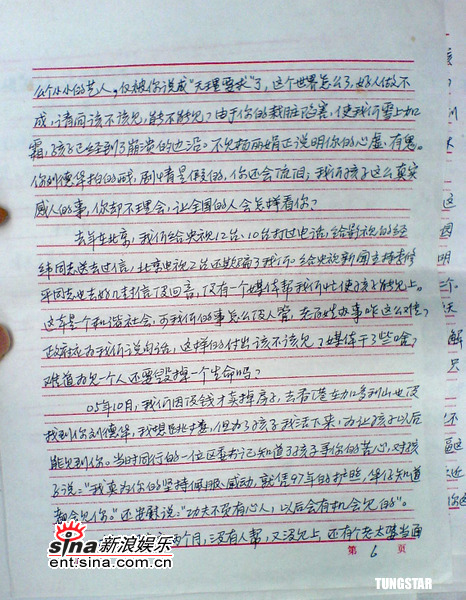 么个小小的艺人，仅被你说成“无理要求”了，这个世界怎么了，好人做不
成，讨者同该不该见，能不能见？由于你的栽脏陷害，使我们雪上加
霜，孩子已经到了崩溃的边沿。不见杨丽娟正说明你的心虚、有鬼。
你刘德华拍的戏，剧情是假的，你还会流泪，我们孩子这么真实
感人的事，你却不理会，让全国的人会怎样看你？
去年在北京，我们给央视12台、10台打过电话，给影视的经
纬同志送去过信，北京电视2台还欺骗了我们。给央视新闻主持
平同志也去好几封信没回音，没有一个媒体帮我们忙使孩子能见上。
这年是个和谐社会，可我们的事怎么没人管，老百姓办事咋这么难？
政府应为我们说句话，这样的付出该不该见？媒体干了些啥？
难道为见一个人还要毁掉一个生命吗？
05年10月，我们因没钱才卖掉房子，去香港在加多利山也没
找到你刘德华，我想跳海，但为了孩子我活下来，为让孩子以后
能见到你。当时同行的一位区委书记知道了孩子等你的苦心，对孩
子说：“我真为你的坚持佩服、感动，就凭97年的护照，华仔知道
都会见你。”还安慰说：“功夫不负有心人，以后会有机会见的”。
两个月，没有人帮，又没见上，还有个老太婆当面
第 6 页
sina 新浪娱乐
ent.sina.com.cn
TUNGSTAR